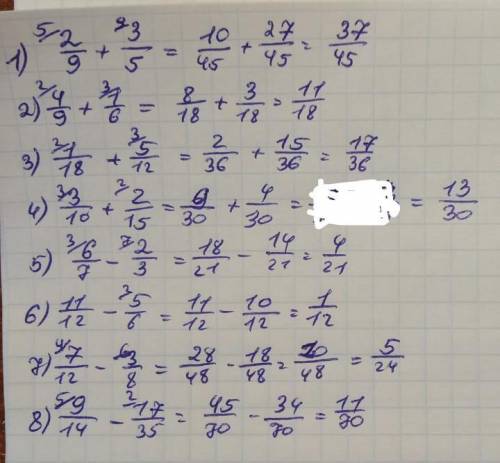 1) ⁵⁄2/9 + ⁹⁄3/5 = 10/45 + 27/45 = 37/45
2) ²⁄4/9 + ³⁄1/6 = 8/18 + 3/18 = 11/18
3) ²⁄1/18 + ³⁄5/12 = 2/36 + 15/36 = 17/36
4) ³⁄3/10 + ²⁄2/15 = 9/30 + 4/30 = = 13/30
5) ³⁄6/7 - ⁷⁄2/3 = 18/21 - 14/21 = 4/21
6) 11/12 - ²⁄5/6 = 11/12 - 10/12 = 1/12
7) ⁴⁄7/12 - ⁶⁄3/8 = 28/48 - 18/48 = 10/48 = 5/24
8) ⁵⁄9/14 - ²⁄17/35 = 45/70 - 34/70 = 11/70